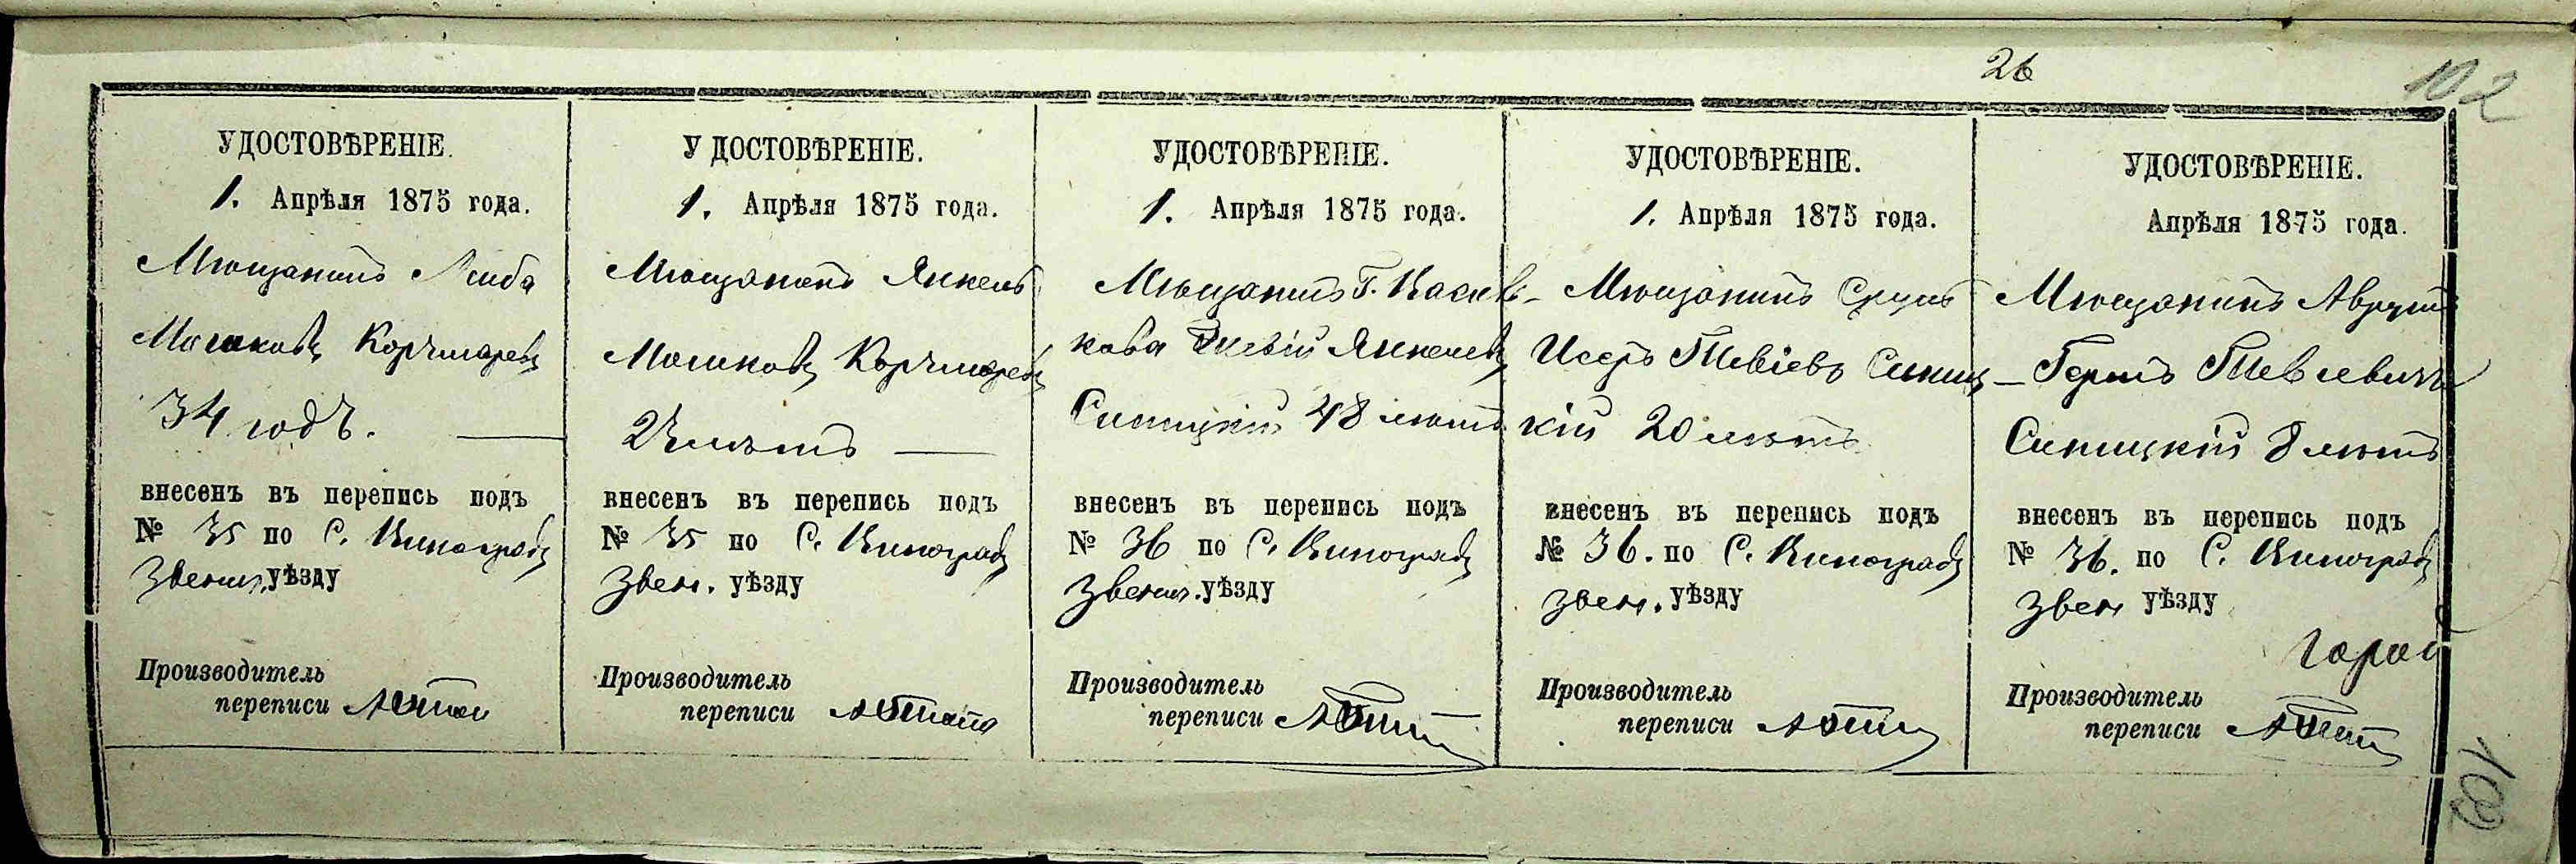 26
102
УДОСТОВѢРЕНІЕ.
1. Апрѣля 1875 года.
Мѣщанинъ Лейба
Мошковъ Корчмаревъ
34 годъ.
внесенъ въ перепись подъ
№ 35 по С. Виноградъ
Звениг. уѣзду
Производитель
переписи
У ДОСТОВѢРЕНІЕ.
1. Апрѣля 1875 года.
Мѣщанинъ Янкель
Мошковъ Корчмаревъ
лѣтъ
внесенъ въ перепись подъ
№ 35 по С. Виноградъ
Звен. уѣзду
Производитель
переписи
УДОСТОВѢРЕНІЕ.
1. Апрѣля 1875 года.
Мѣщанинъ Г. Василь-
кова Янкелевъ
Синицкій 48 лѣтъ
внесенъ въ перепись подъ
№ 36 по С. Виноградъ
Звениг. уѣзду
Производитель
переписи
УДОСТОВѢРЕНІЕ.
1. Апрѣля 1875 года.
Мѣщанинъ Сруль
Исеръ Тевіевъ Синиц-
кій 20 лѣтъ
внесенъ въ перепись подъ
№ 36. по С. Виноградъ
Звен. уѣзду
Производитель
переписи
УДОСТОВѢРЕНІЕ.
Апрѣля 1875 года.
Мѣщанинъ Аврумъ
Гершъ Тевіевичъ
Синицкій 8 лѣтъ
внесенъ въ перепись подъ
№ 36. по С. Виноградъ
Звен уѣзду
Производитель
переписи